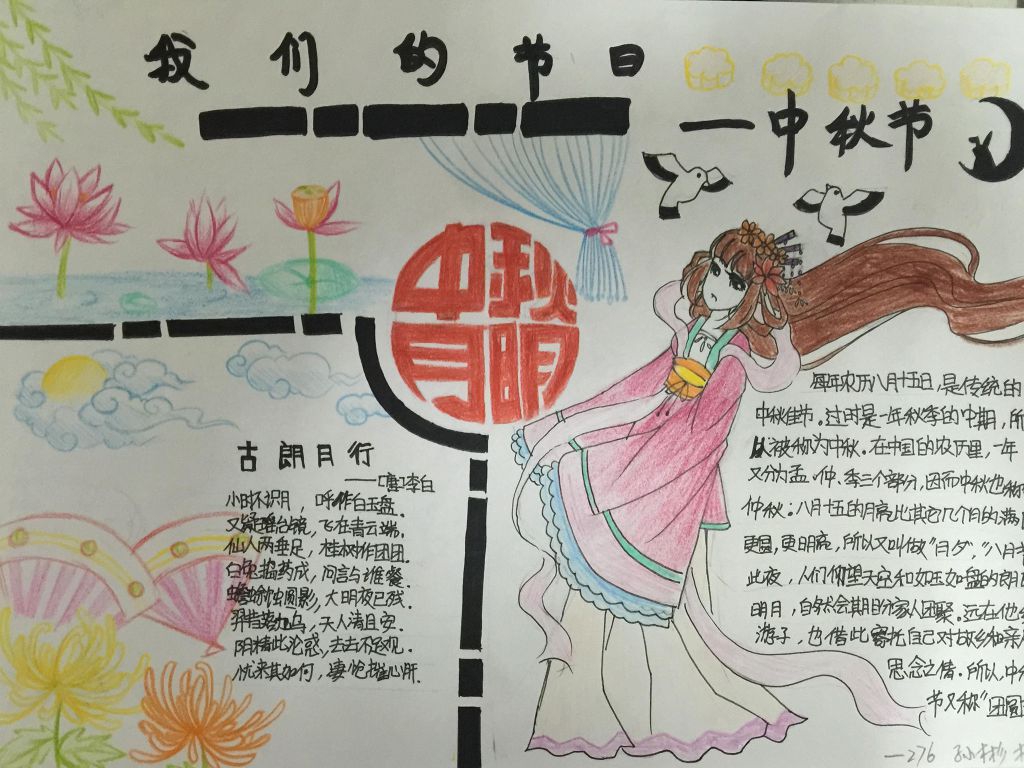 我们的节日
一中秋节
中秋
月明
古朗月行
——[唐]李白
小时不识月，呼作白玉盘.
又疑瑶台镜，飞在青云端.
仙人两垂足，桂树作团团.
白兔捣药成，问言与谁餐.
蟾蜍蚀圆影，大明夜已残.
羿昔落九乌，天人清且安.
阴精此沦惑，去去不足观.
忧来其如何，凄怆摧心肝.
每年农历八月十五日，是传统的
中秋佳节.过时是一年秋季的中期，所
以被称为中秋.在中国的农历里，一年
又分为孟、仲、季三个部分，因而中秋也称
仲秋.八月十五的月亮比其它几个月的满
更圆，更明亮，所以又叫做"月夕"，"八月
此夜，人们仰望天空和如玉如盘的朗
明月，自然会期盼家人团聚.远在他
游子，也借此寄托自己对故乡和亲
思念之情.所以，中
节又称"团圆
—276 孙彬